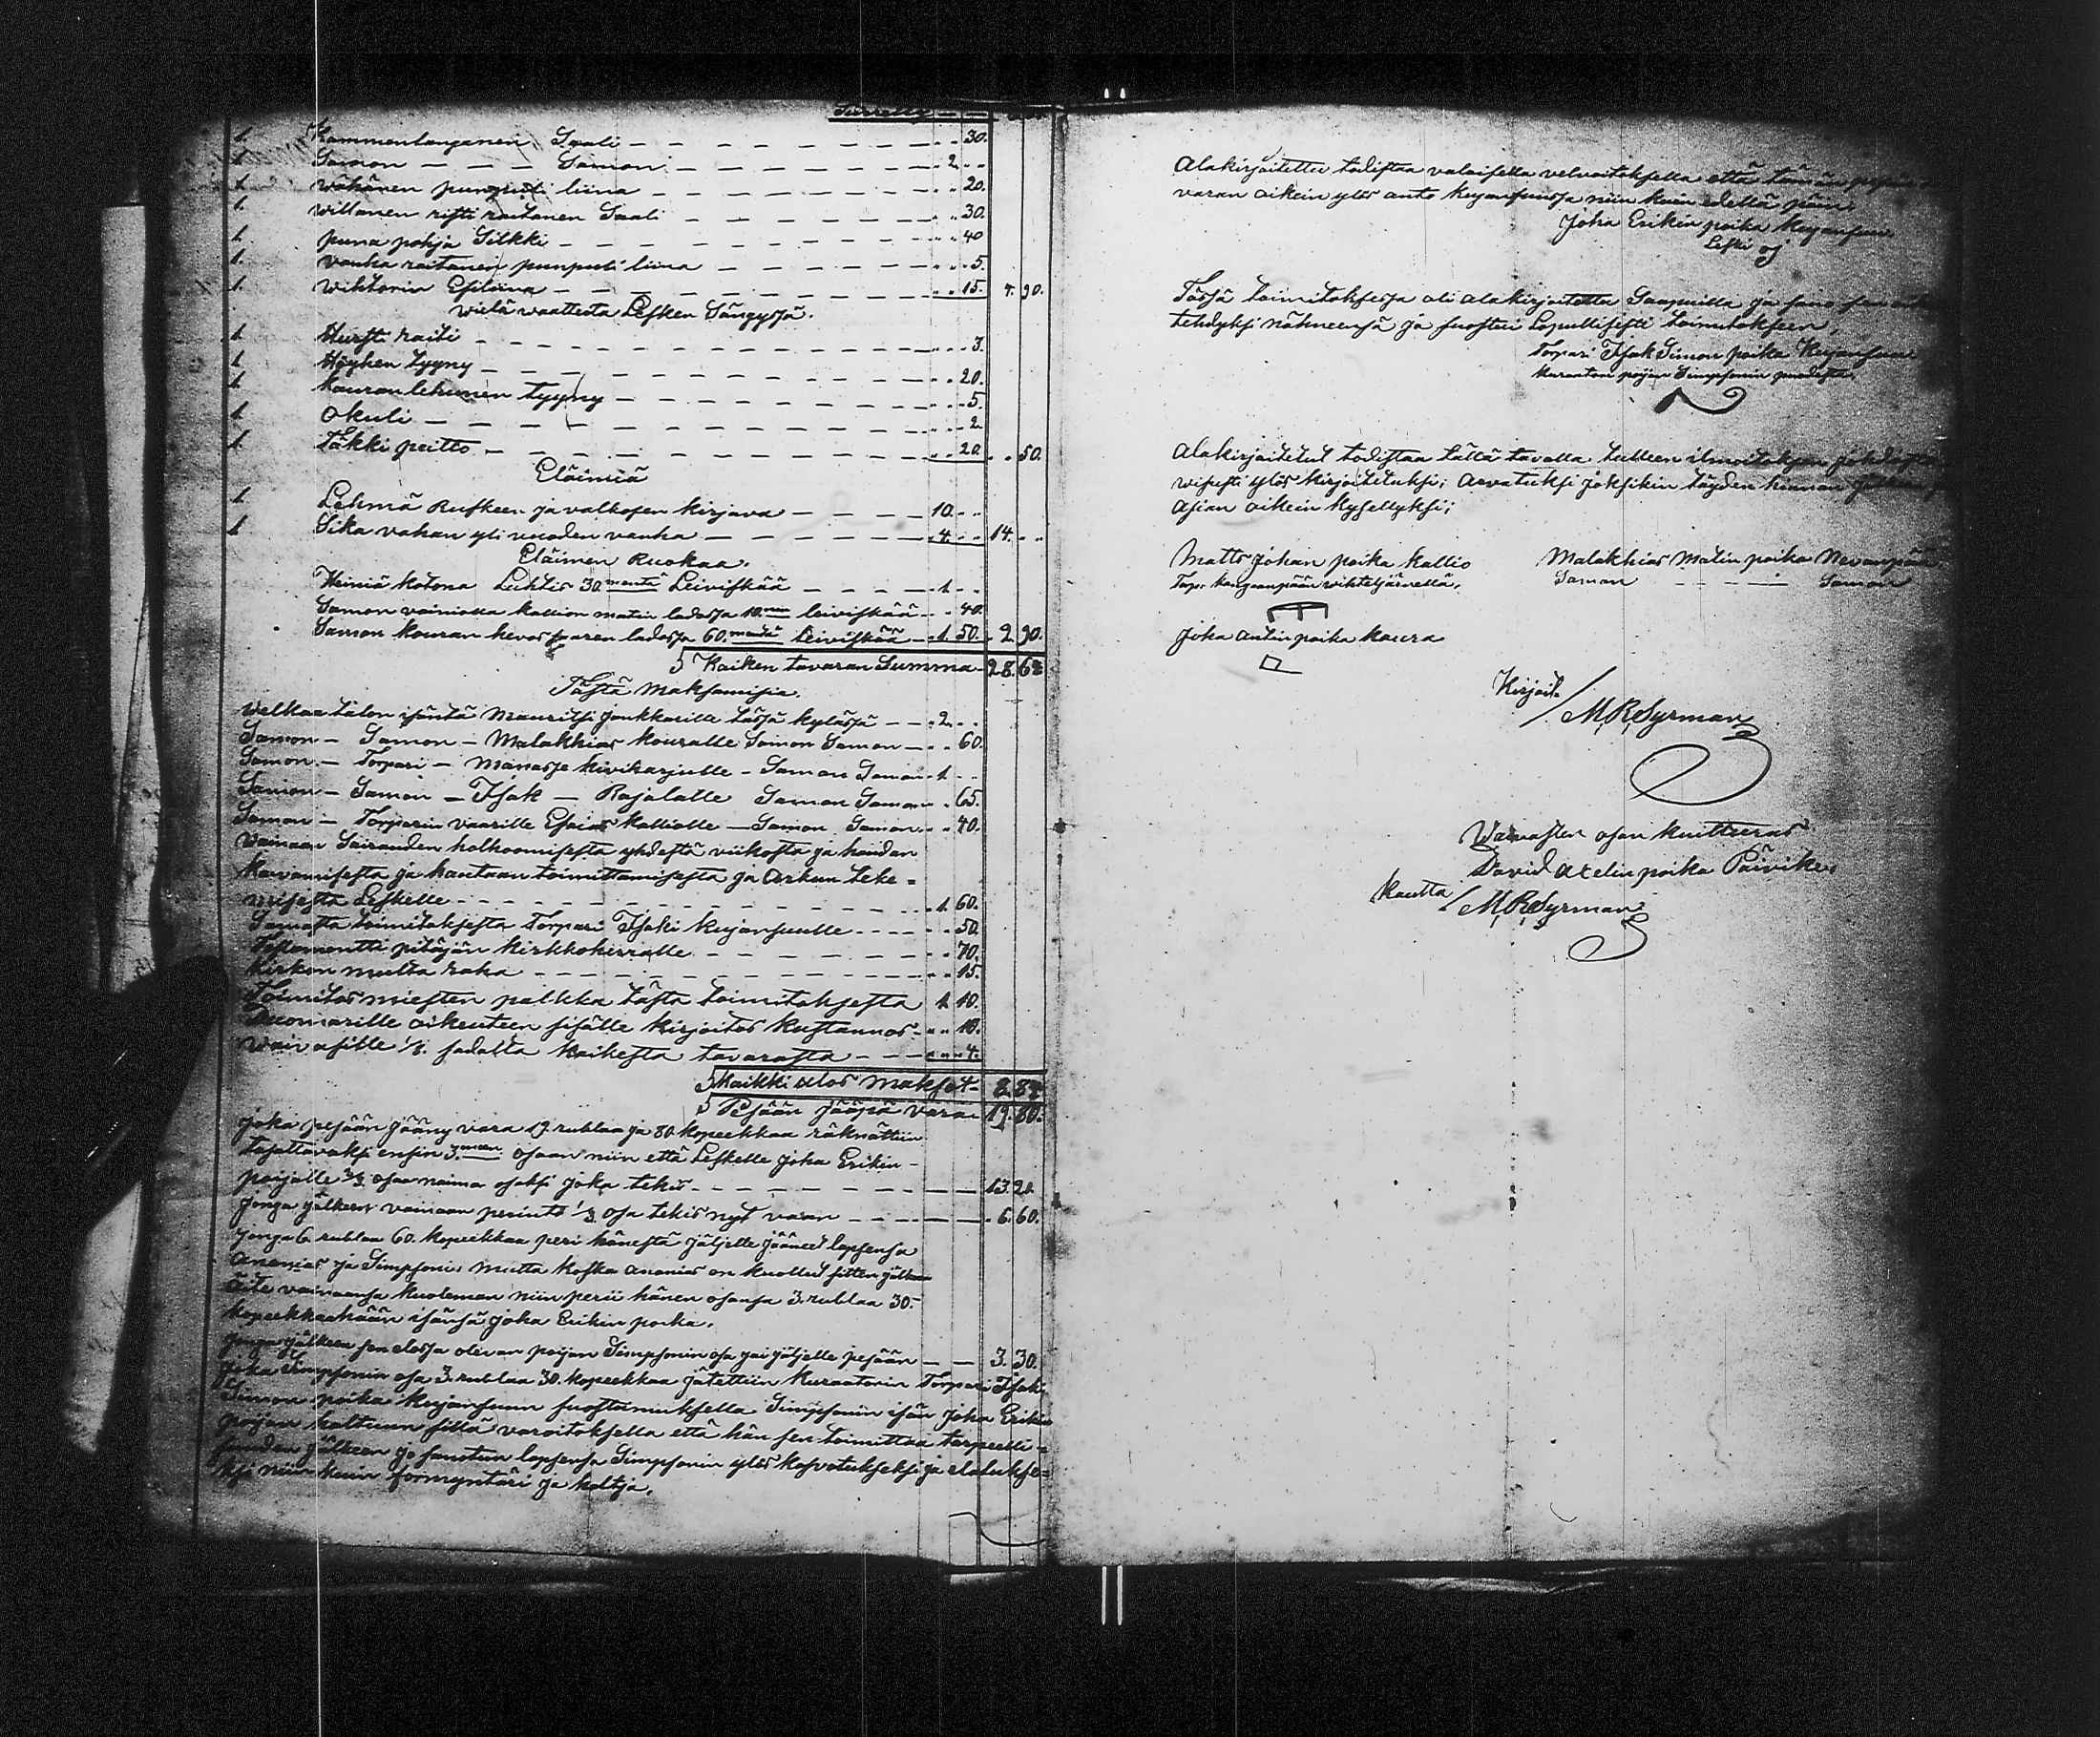 Siirretty - -
1. Kammanlanganen Saali - - 30.
1. Samon - - Samoni - 2. - -
1. Wähänen punguti liina - - 20.
1. Willanen risti raitanen Saali - - 30.
1. puna pohja Silkki - - 40
1. Vanha raitanen punputi liina - - 5.
1. Wiktorin Esiliina - - 15. 4. 90.
Wielä waatteita Lesken Sängyssä.
1. Hursti raiti - - 3.
1. Höyhen tyyny - - 20.
1. Kauran lehunen tyyny - - 5.
1. Okuli - - 2.
1. Täkki peitto - - 20. - - 50.
Eläimiä
1. Lehmä Ruskeen ja valkosen kirjava - 10. - -
1. Sika vahan yli vuoden vanha - 4. - - 14. - -
Eläimen Ruokaa.
Heiniä kotona Luhtis 30. mentä Leiviskää - 1. - -
Samon vainiolla kallion matin ladossa 10. nen leiviskää - - 40.
Samon kouran hevos saaren ladossa 60. mentä leiviskää - 1. 50. - 2. 90.
Kaiken tavaran Summa - 28. 64
Tästä Maksamisia.
Welkaa talon isäntä Mauritsi Jonkkarille tässä kylässä - - 2. - -
Samon - Samon - Malakhias Kouralle Samon Samon - - 60.
Samon - Torpari - Manasse Kivikarjulle - Samon Samon - 1. - -
Samon - Samon - Isak - Rajalalle Samon Samon - - 65.
Samon - Torparin vaarille Esaias Kalliolle - Samon Samon - - 40.
Wainaan Sairauden holhoomisesta yhdestä viikosta ja haudan
kaivamisesta ja hautaan toimittamisesta ja Arkun teke=
misestä Leskelle - - 1. 60.
Samasta toimituksesta Torpari Isaki Kujansuulle - - 50.
Testamentti pitäjän kirkkoherralle - - 70.
Kirkon multa raha - - 15.
Toimitos miesten palkka tästä toimitoksesta 1. 10.
Duomarille oikeuteen sisälle kirjoitos kustannos - - 10.
Waivasille 1/8. sadalta kaikesta tavarasta - - 4.
Kaikki ulos maksot - 8. 84
Pesään jääpä vara - 19. 80.
Joka pesään jääny vara 19. rublaa ja 80. kopeekkaa räknättiin
tasattavaksi ensin 3. meen osaan niin että Leskelle Joha Erikin-
poijalle 2/3 osaa naima osaksi joka tekis - - 13. 20.
Jonga jälkeen vainaan perintö 1/3 osa tekis nyt vaan - - 6. 60.
Jonga 6. rublaa 60. kopeekkaa peri hänestä jäljelle jääneet lapsensa
Ananias ja Simpsoni, mutta koska Ananias on kuollut sitten jälkeen
äite vainaansa kuoleman niin perii hänen osansa 3. rublaa 30.
kopeekkaahään isänsä Joha Erikin poika.
Jonga jälkeen sen elossa olevan poijan Simpsonin osa jäi jäljelle pesään - - 3. 30.
Joka Simpsonin osa 3. rublaa 30. kopeekkaa jätettiin Kuraatorin Torpari Isak
Simon poika Kujansuun suostumuksella Simpsonin isän Joha Erikin
poijan haltuun sillä varoitoksella että hän sen toimittaa tarpeelli=
suuden jälkeen jo sanotun lapsensa Simpsonin ylös kasvatukseksi ja elatukse=
ksi niinkuin formyntäri ja haltja.
Alakirjoitettu todistaa valaisella velvoitoksella että tämän
varan oikein ylös anto Kujansuussa niin kuin edellä päin
Joha Erikin poika Kujansuu
Leski oj
Tässä toimitoksessa oli alakirjoitettu Saapuilla ja sano sen
tehdyksi nähneensä ja suostui Lopullisesti toimitokseen
Torpari Isak Simon poika Kujansuu
Kuraatori poijan Simpsonin puolesta
Alakirjoitetut todistaa tällä tavalla tulleen ilmoitoksen
wisusti ylös kirjoitetuksi; Arvatuksi joksikin täyden hinnan
Asian oikein kysellyksi;
Matts Johan poika Kallio Malakhias Matin poika Nevanpää
Torp. Kangaanpään wihteljärvellä, Samon - - Samon
Joha Antin poika Koura
Kirjoit.
M. R. Syrman
Waivasten osan kuitteeras
David Axelin poika Päivike
Kautta M. R. Syrman